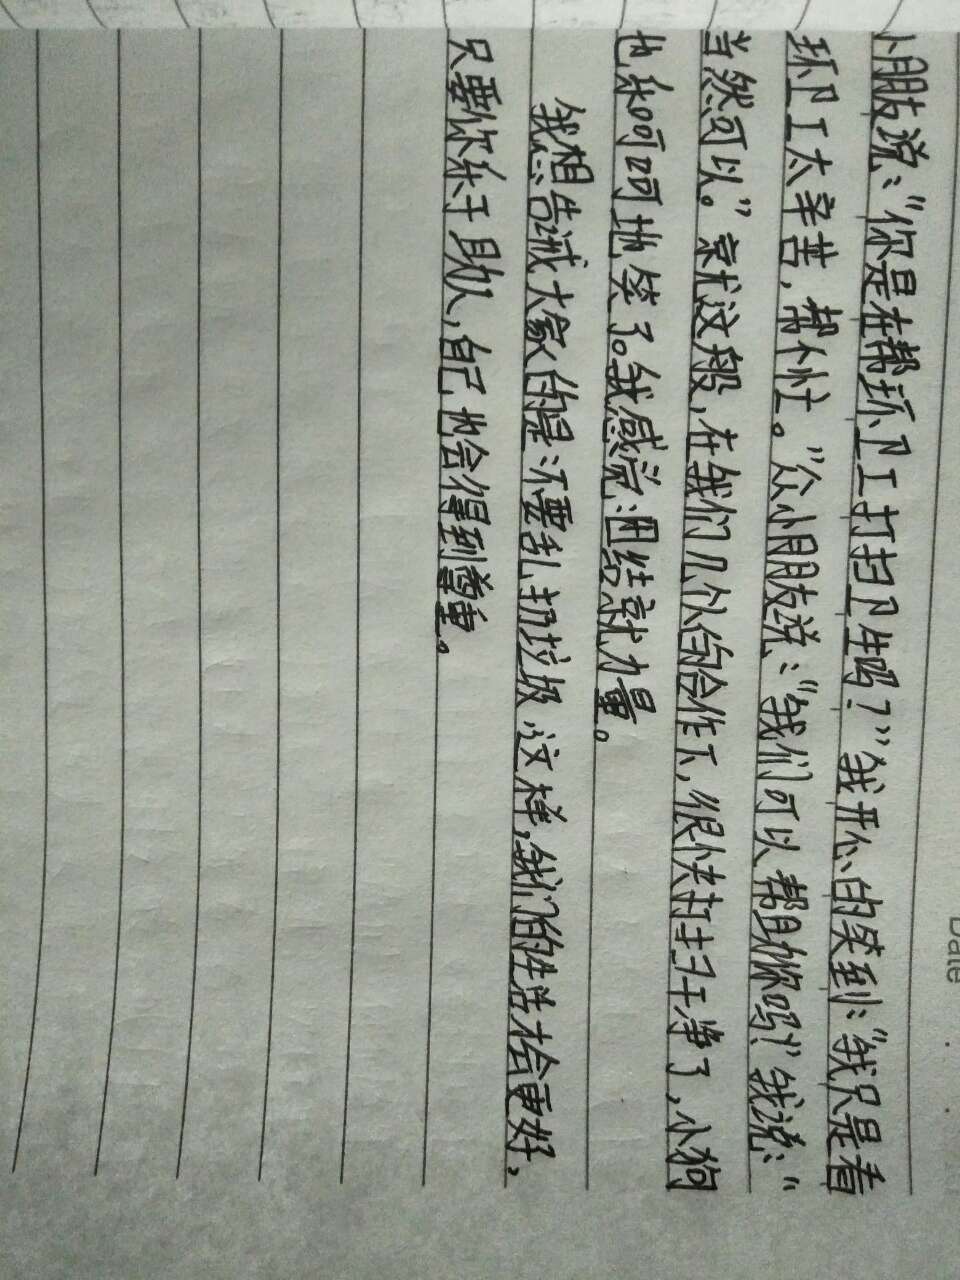 小朋友说:“你是在帮环卫工打扫卫生吗?”我开心的笑到:“我只是看
环卫工太辛苦,帮个忙。”众小朋友说:“我们可以帮助你吗?”我说:“
当然可以。”就这般,在我们几个人的合作下,很快打扫干净了,小狗
也乐呵呵地笑了。我感觉:团结就力量。
我想告诫大家的是:不要乱扔垃圾,这样,我们的生活才会更好,
只要你乐于助人,自己也会得到尊重。
Date